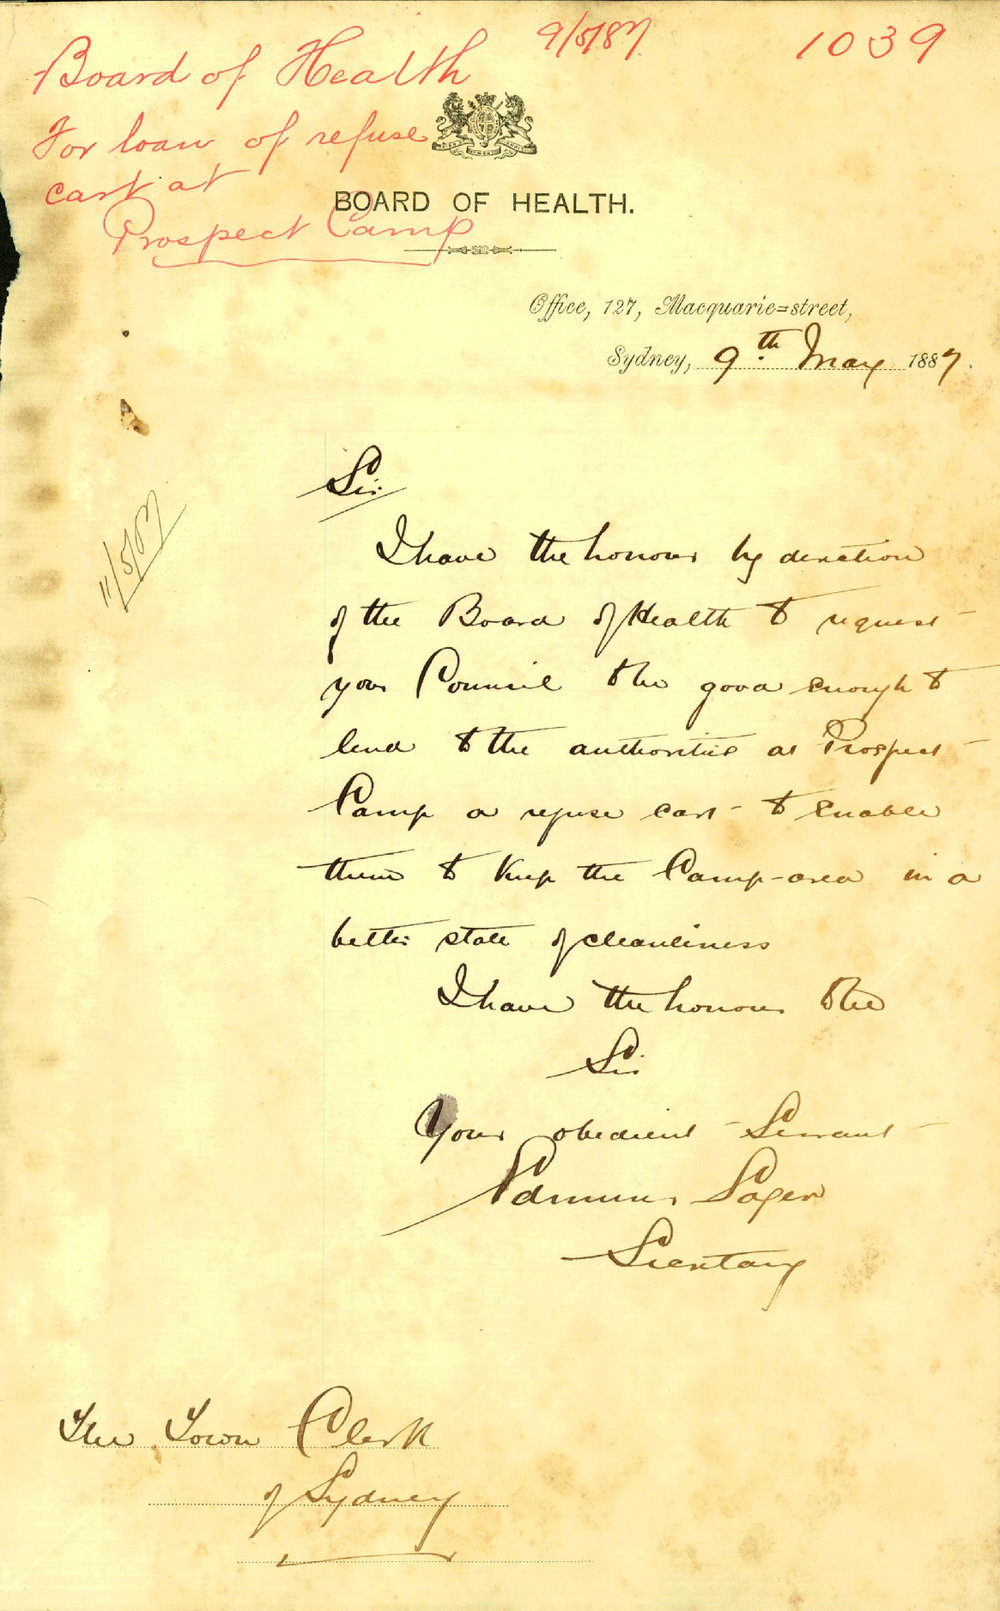 Board of Health
9/5/87
1039
For loan of refuse
cart at
Prospect Camp
BOARD OF HEALTH.
Office, 127, Macquarie=street,
Sydney, 9th May 1887.
11/5/87
Sir
I have the honour by direction
of the Board of Health to request
your Council to be good enough to
lend to the authorities at Prospect
Camp a refuse cart to enable
them to keep the Camp-area in a
better state of cleanliness
I have the honour to be
Sir
Your obedient Servant
Edmund Sager
Secretary
The Town Clerk
of Sydney